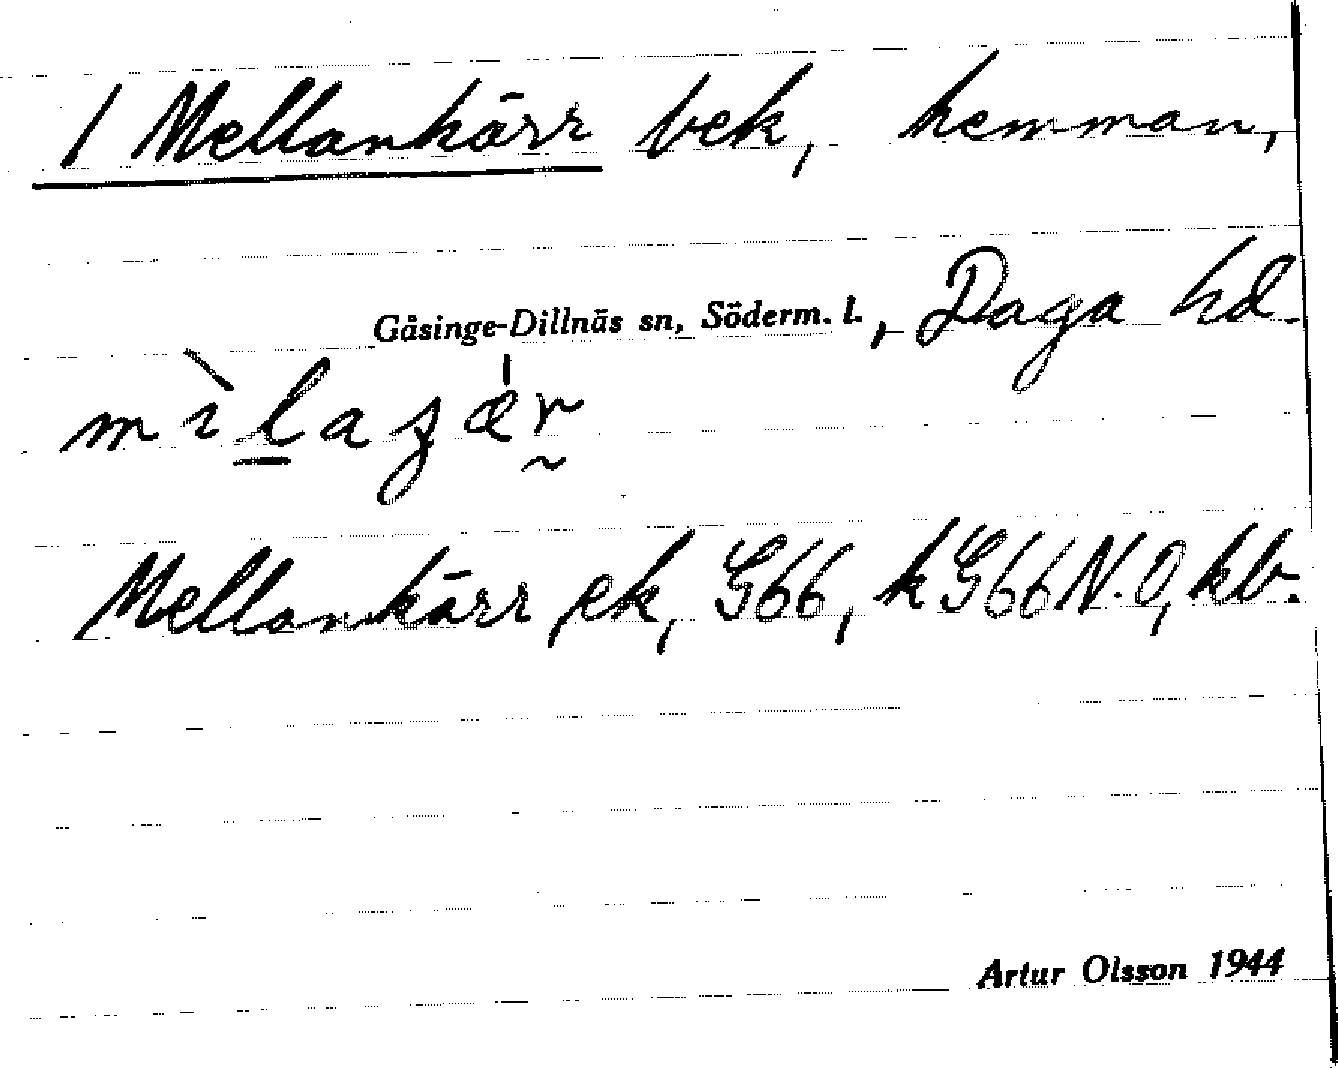 1 Mellankärr bek, hemman,
Gåsinge-Dillnäs sn, Söderm. l., Daga hd.
Mellankärr ek, G66, k G66 N.O, kb.
Artur Olsson 1944